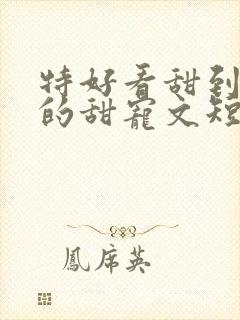 特好看甜到
的甜寵文短
鳳席英